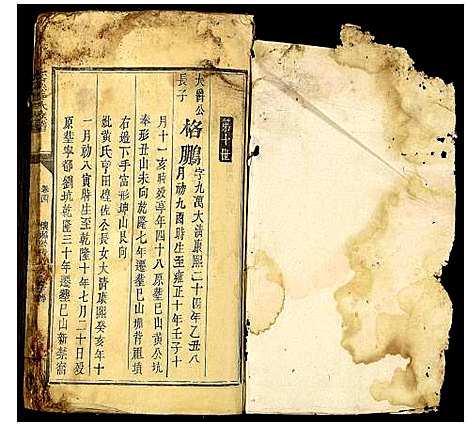 第十世
大爵公
長子
格鵬
字九萬大清康熙二十四年乙丑八
月初九酉時生至雍正十年壬子十
月十一亥時歿享年四十八原塟巳山黄公坑
奉形丑山未向乾隆七年遷塟巳山塘背祖墳
右邊下手富形坤山艮向
紕黄氏亨田煌佐公長女大清康熙癸亥年十
一月初八寅時生至乾隆十年七月二十日歿
原塟寧都劉坑乾隆三十年遷塟巳山新祭崙
卷四